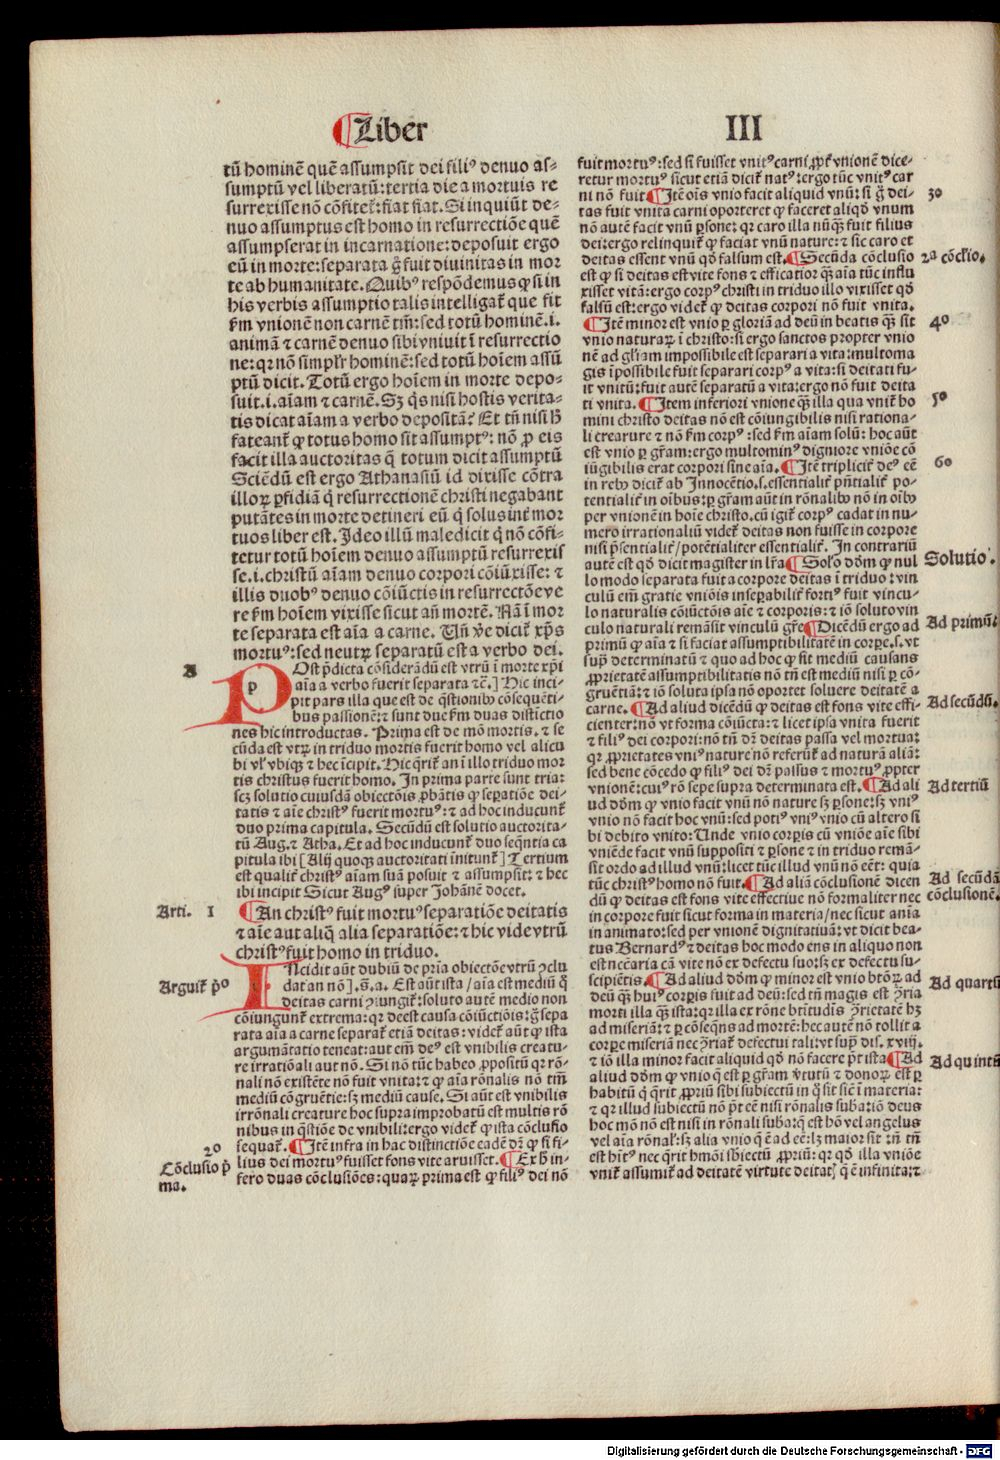 ¶Liber III
tū hominē quē assumpsit dei filiꝰ denuo as-
sumptū vel liberatū: tertia die a mortuis re
surrexisse nō cōfitet᷑: fiat fiat. Si inquiūt de-
nuo assumptus est homo in resurrectiōe quē
assumpserat in incarnatione: deposuit ergo
eū in morte: separata g̊ fuit diuinitas in mor
te ab humanitate. Quibꝰ respōdemus ꝙ si in
his verbis assumptio talis intelligat᷑ que fit
ẜm vnionem non carnē tm̄: sed totū hominē .i.
animā ⁊ carnē denuo sibi vniuit ī resurrectio
ne: qꝛ nō simplr̄ hominē: sed totū hoīem assū
ptū dicit. Totū ergo hoīem in morte depo-
suit .i. aīam ⁊ carnē. Sꝫ q̇s nisi hostis verita-
tis dicat aīam a verbo depositā? Et tn̄ nisi ħ
fateant᷑ ꝙ totus homo sit assumptꝰ: nō ꝓ eis
facit illa auctoritas q̄ totum dicit assumptū
Sciēdū est ergo Athanasiū id dixisse cōtra
illoꝝ ꝑfidiā q̇ resurrectionē christi negabant
putātes in morte detineri eū q̇ solus int̄ mor
tuos liber est. Ideo illū maledicit q̇ nō cōfi-
tetur totū hoīem denuo assumptū resurrexis
se .i. christū aīam denuo corpori cōiūxisse: ⁊
illis duobꝰ denuo cōiūctis in resurrectōe ve
re ẜm hoīem vixisse sicut an̄ mortē. Nā ī mor
te separata est aīa a carne. Vn̄ v̄e dicit᷑ xp̄s
mortuꝰ: sed neutꝝ separatū est a verbo dei.
A
POst p̄dicta cōsiderādū est vtrū ī morte xp̄i
aīa a verbo fuerit separata ⁊c̄.] Hic inci-
pit pars illa que est de q̄stionibꝫ cōsequēti-
bus passionē: ⁊ sunt due ẜm duas distictio
nes hic introductas. Prima est de mō mortis. ⁊ se
cūda est vtꝝ in triduo mortis fuerit homo vel alicu
bi vl̓ vbiqꝫ ⁊ hec īcipit. Hic q̄rit᷑ an ī illo triduo mor
tis christus fuerit homo. In prima parte sunt tria:
scꝫ solutio cuiusdā obiectōis ꝓbātis ꝙ seꝑatiōe dei-
tatis ⁊ aīe christꝰ fuerit mortuꝰ: ⁊ ad hoc inducunt᷑
duo prima capitula. Secūdū est solutio auctorita-
tū Aug. ⁊ Atha. Et ad hoc inducunt᷑ duo seq̄ntia ca
pitula ibi [Alij quoqꝫ auctoritati īnitunt᷑] Tertium
est qualit᷑ christꝰ aīam suā posuit ⁊ assumpsit: ⁊ hec
ibi incipit Sicut Augꝰ super Johānē docet.
Arti. I
¶An christꝰ fuit mortuꝰ separatiōe deitatis
⁊ aīe aut aliq̄ alia separatiōe: ⁊ hic vide vtrū
christꝰ fuit homo in triduo.
Arguit᷑ p̊
INcidit aūt dubiū de p̄ria obiectōe vtrū ꝯclu
dat an nō] .S. a. Est aūt ista / aīa est mediū q̊
deitas carni ꝯiungit᷑: soluto autē medio non
cōiungunt᷑ extrema: qꝛ deest causa cōiūctiōis: g̊ sepa
rata aīa a carne separat᷑ etiā deitas: videt᷑ aūt ꝙ ista
argumātatio teneat: aut em̄ deꝰ est vnibilis creatu-
re irratiōali aut nō. Si nō tūc habeo ꝓpositū qꝛ rō-
nali nō existēte nō fuit vnita: ⁊ ꝙ aīa rōnalis nō tm̄
mediū cōgruētie: sꝫ mediū cause. Si aūt est vnibilis
irrōnali creature hoc supra improbatū est multis rō
nibus in q̄stiōe de vnibili: ergo videt᷑ ꝙ ista cōclusio
sequat᷑. ¶Itē infra in hac distinctiōe eadē dr̄ ꝙ si fi-
2º
lius dei mortuꝰ fuisset fons vite aruisset. ¶Ex ħ in-
Cōclusio p̄
ma.
fero duas cōclusiōes: quaꝝ prima est ꝙ filiꝰ dei nō
fuit mortuꝰ: sed si fuisset vnitꝰ carni ꝓpt᷑ vnionē dice-
retur mortuꝰ sicut etiā dicit᷑ natꝰ: ergo tūc vnitꝰ car
ni nō fuit ¶Itē oīs vnio facit aliquid vnū: si g̊ dei-
3º
tas fuit vnita carni oporteret ꝙ faceret aliqd̓ vnum
nō autē facit vnū ꝑsone: qꝛ caro illa nūq̄ꝫ fuit filius
dei: ergo relinquit᷑ ꝙ faciat vnū nature: ⁊ sic caro et
deitas essent vnū qd̓ falsum est. ¶Secūda cōclusio
2ª cōclīo.
est ꝙ si deitas est vite fons ⁊ efficatioꝛ q̄ꝫ aīa tūc influ
xisset vitā: ergo corpꝰ christi in triduo illo vixisset qd̓
falsū est: ergo videt᷑ ꝙ deitas corpori nō fuit vnita.
4º
¶Itē minor est vnio ꝑ gloriā ad deū in beatis q̄ꝫ sit
vnio naturaꝝ ī christo: si ergo sanctos propter vnio
nē ad gl̓iam impossibile est separari a vita: multo ma
gis īpossibile fuit separari corpꝰ a vita: si deitati fu-
it vnitū: fuit autē separatū a vita: ergo nō fuit deita
ti vnita. ¶Item inferiori vnione q̄ꝫ illa qua vnit᷑ ho
5º
mini christo deitas nō est cōiungibilis nisi rationa-
li creature ⁊ nō ẜm corpꝰ: sed ẜm aīam solū: hoc aūt
est vnio ꝑ gr̄am: ergo multominꝰ digniore vniōe cō
iūgibilis erat corpori sine aīa. ¶Itē triplicit᷑ deꝰ eē
6º
in rebꝫ dicit᷑ ab Innocētio .s. essentialit᷑ p̄ntialit᷑ po-
tentialit᷑ in oībus: ꝑ gr̄am aūt in rōnalibꝫ nō in oībꝫ
per vnionem in hoīe christo. cū igit᷑ corpꝰ cadat in nu-
mero irrationaliū videt᷑ deitas non fuisse in corpore
nisi p̄sentialit᷑ / potētialiter essentialit᷑. In contrariū
autē est qd̓ dicit magister in lr̄a ¶Solo dd̓m ꝙ nul
Solutio.
lo modo separata fuit a corpore deitas ī triduo: vin
culū em̄ gratie vniōis inseꝑabilit᷑ fortiꝰ fuit vincu-
lo naturalis cōiūctōis aīe ⁊ corporis: ⁊ iō soluto vin
culo naturali remāsit vinculū gr̄e ¶Dicēdū ergo ad
Ad primū:
primū ꝙ aīa ⁊ si faciat assumptibilitatē in corꝑe .s. vt
supꝰ determinatū ⁊ quo ad hoc ꝙ sit mediū causans
ꝓprietatē assumptibilitatis nō tn̄ est mediū nisi ꝑ cō-
gruētiā: ⁊ iō soluta ipsa nō oportet soluere deitatē a
carne. ¶Ad aliud dicēdū ꝙ deitas est fons vite effi-
Ad secūdū.
cienter: nō vt forma cōiūcta: ⁊ licet ipsa vnita fuerit
⁊ filiꝰ dei corpori: nō tn̄ dr̄ deitas passa vel mortua:
qꝛ ꝓprietates vniꝰ nature nō referūt᷑ ad naturā aliā:
sed bene cōcedo ꝙ filiꝰ dei dr̄ passus ⁊ mortuꝰ ꝓpter
vnionē: cuiꝰ rō sepe supra determinata est. ¶Ad ali
Ad tertiū
ud dd̓m ꝙ vnio facit vnū nō nature sꝫ ꝑsone: sꝫ vniꝰ
vnio nō facit hoc vnū: sed potiꝰ vniꝰ vnio cū altero si
bi debito vnito: Unde vnio corꝑis cū vniōe aīe sibi
vniēde facit vnū suppositi ⁊ ꝑsone ⁊ in triduo remā-
sit ordo ad illud vnū: licet tūc illud vnū nō eēt: quia
tūc christꝰ homo nō fuit. ¶Ad aliā cōclusionē dicen
Ad secūdā
cōclusionē.
dū ꝙ deitas est fons vite effectiue nō formaliter nec
in corpore fuit sicut forma in materia / nec sicut anīa
in animato: sed per vnionē dignitatiuā: vt dicit bea-
tus Bernardꝰ ⁊ deitas hoc modo ens in aliquo non
est nec̄aria cā vite nō ex defectu suo: sꝫ ex defectu su-
scipiētis. ¶Ad aliud dd̓m ꝙ minor est vnio btōꝝ ad
Ad quartū
deū q̄ꝫ huiꝰ corꝑis fuit ad deū: sed tn̄ magis est ꝯ̄ria
morti illa q̄ꝫ ista: qꝛ illa ex rōne btitudīs ꝯ̄rietatē hꝫ
ad miseriā: ⁊ ꝑ cōseq̄ns ad mortē: hec autē nō tollit a
corꝑe miseriā nec ꝯ̄riat᷑ defectui tali: vt supꝰ dis. xviij.
⁊ iō illa minor facit aliquid qd̓ nō facere pōt ista ¶Ad
Ad quintū
aliud dd̓m ꝙ vnio q̄ est ꝑ gr̄am v̄tutū ⁊ donoꝝ est ꝑ
habitū q̇ q̄rit ꝓpriū sibi subiectū in q̊ sit sic̄ ī materia:
⁊ qꝛ illud subiectū nō pōt eē nisi rōnalis suba: iō deus
hoc mō nō est nisi in rōnali suba: q̄ est hō vel angelus
vel aīa rōnal̓: sꝫ alia vnio q̄ ē ad eē: lꝫ maior sit: tn̄
est hītꝰ nec q̄rit hmōi sb̓iectū ꝓpriū: qꝛ qd̓ illa vniōe
vnit᷑ assumit᷑ ad deitatē virtute deitatꝭ q̄ ē infinita: ⁊
Digitalisierung gefördert durch die Deutsche Forschungsgemeinschaft - DFG